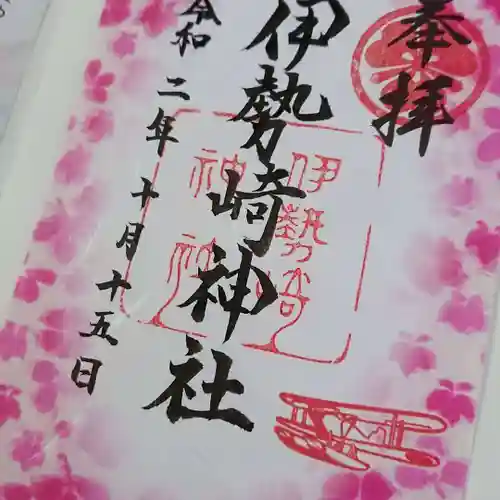 奉拝
伊勢崎神社
令和二年十月十五日
伊勢崎
神社